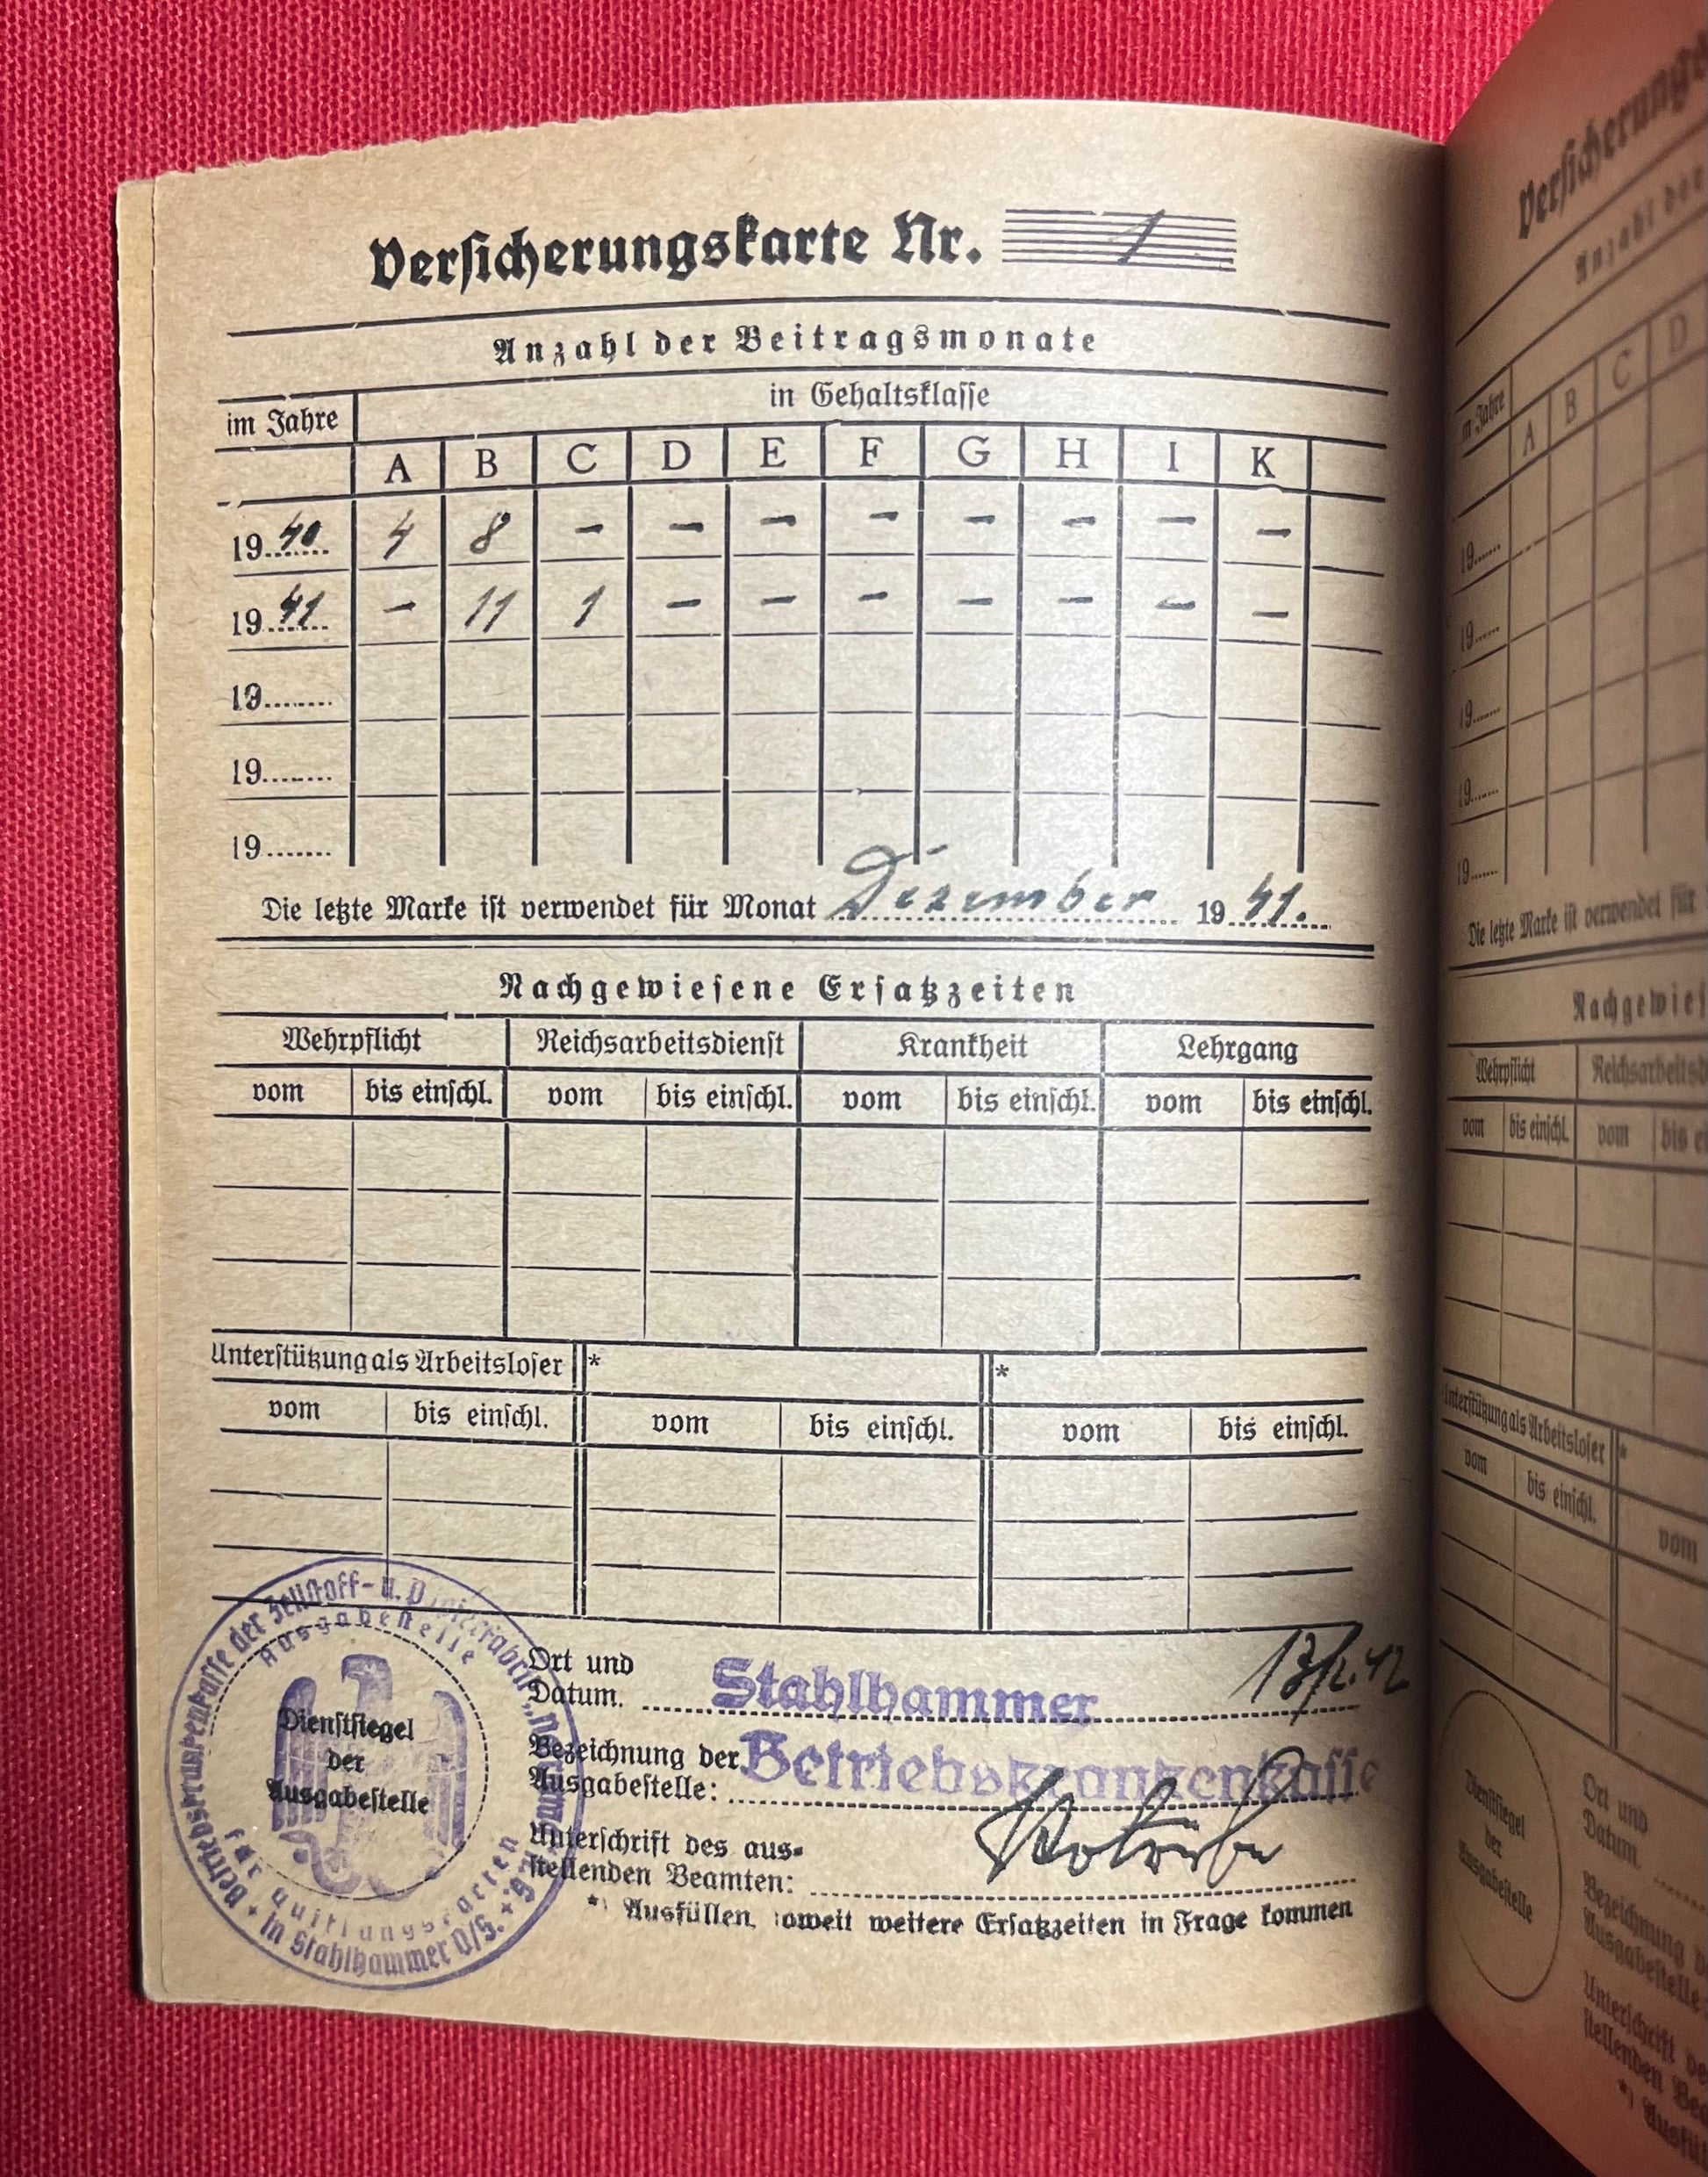 Versicherungskarte Nr. 1
Anzahl der Beitragsmonate
im Jahre
in Gehaltsklasse
A B C D E F G H I K
1940 4 8 – – – – – – – –
1941 – 11 1 – – – – – – –
19........
19........
19........
Die letzte Marke ist verwendet für Monat Dezember 1941.
Nachgewiesene Ersatzzeiten
Wehrpflicht Reichsarbeitsdienst Krankheit Lehrgang
vom bis einschl. vom bis einschl. vom bis einschl. vom bis einschl.
Unterstützung als Arbeitsloser * *
vom bis einschl. vom bis einschl. vom bis einschl.
Betriebskrankenkasse der Zellstoff- u. Papierfabrik
in Stahlhammer O/S.
Ausgabestelle
für Quittungskarten
Dienstsiegel
der
Ausgabestelle
Ort und
Datum. Stahlhammer 13/1. 42
Bezeichnung der
Ausgabestelle: Betriebskrankenkasse
Unterschrift des aus-
stellenden Beamten:
*) Ausfüllen, soweit weitere Ersatzzeiten in Frage kommen
Versicherungs
Anzahl der
im Jahre
A B C D
19........
19........
19........
19........
19........
Die letzte Marke ist verwendet für
Nachgewies
Wehrpflicht Reichsarbeitsd
vom bis einschl. vom bis ei
Unterstützung als Arbeitsloser *
vom bis einschl. vom
Dienstsiegel
der
Ausgabestelle
Ort und
Datum.
Bezeichnung de
Ausgabestelle:
Unterschrift de
stellenden Bea
*) Ausfü